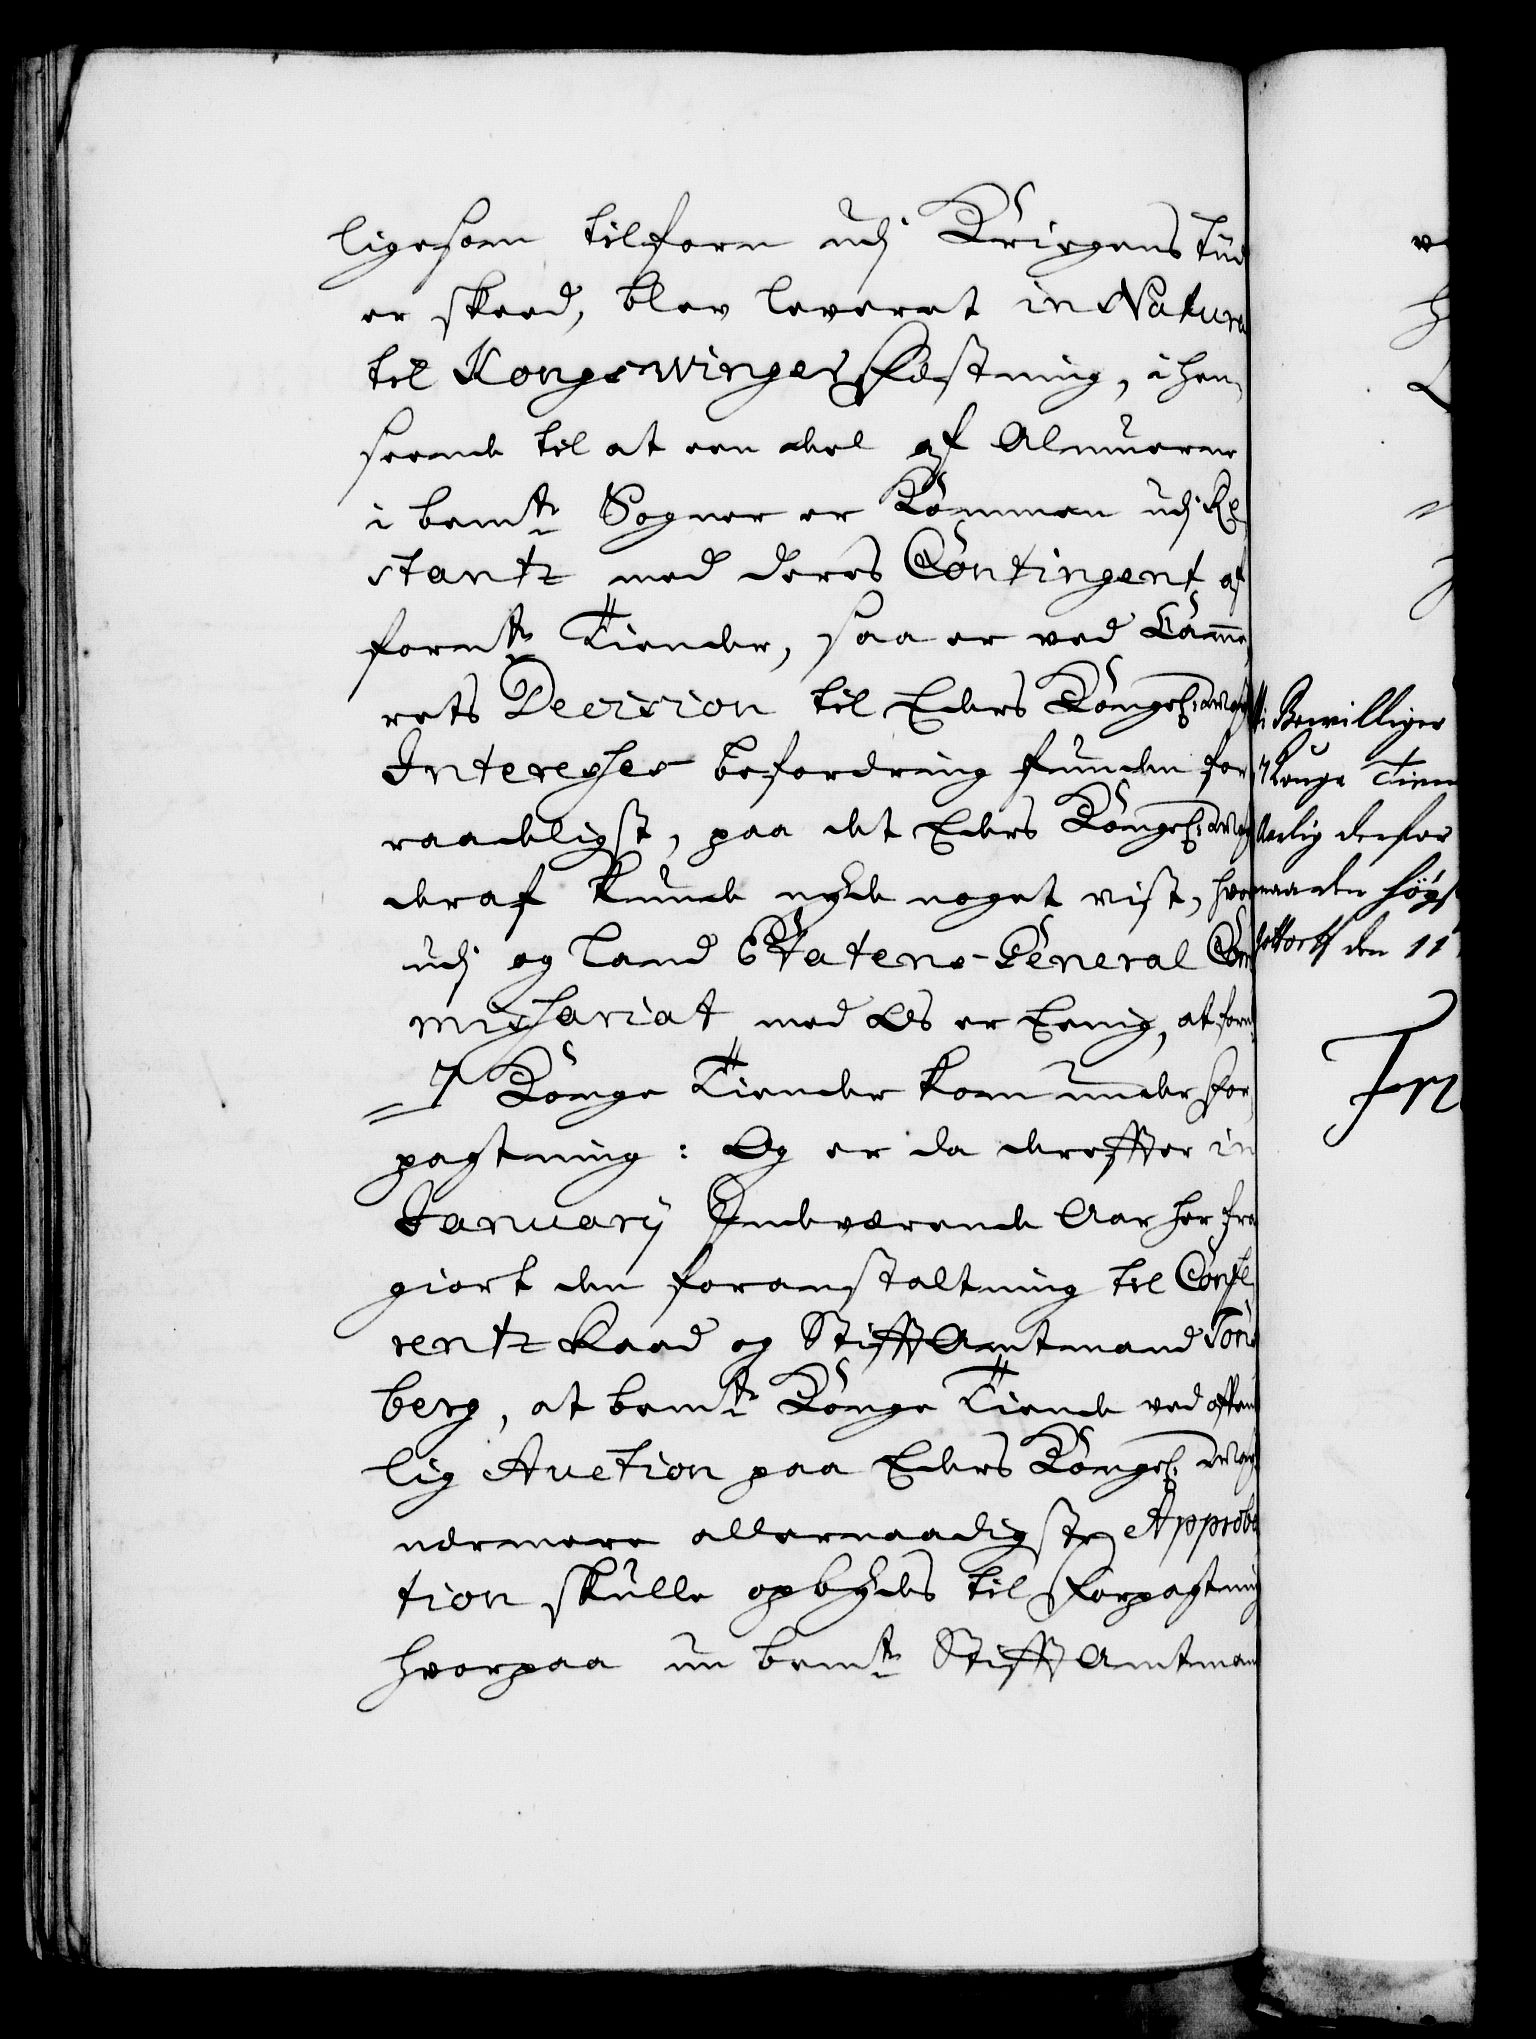 ligesom tilforn udj Kriigens tiid
er skeed, blev leveret in Natura
til Kongswingers Fæstning, i hen,
seende til at een deel af Almuerne
i bemte Sogner er kommen udj Re,
stantz med deres Contingent af
formte Tiender, saa er ved Camme,
rets Decision til Eders Kongel: May:
Interesses befordring funden for
raadeligst, paa det Eders Kongel: May:
deraf kunde nyde noget vist, hvor
udj og Land Etatens General Com
missariat med Os er Eenig, at form
7 Konge Tiender kom under for,
pagtning: Og er da derefter in
Januarij Indeværende Aar her fra
giort den foranstaltning til Confe,
rentz Raad og Stifft Amtmand Tons
berg, at bemte Konge Tiende ved offent
lig Auction paa Eders Kongel: May:
nermere allernaadigste Approba
tion skulle opbydes til forpagtning
hvorpaa nu bemte Stifft Amtmand
Bewilliger
7 Konge Tien
derfor
den 11